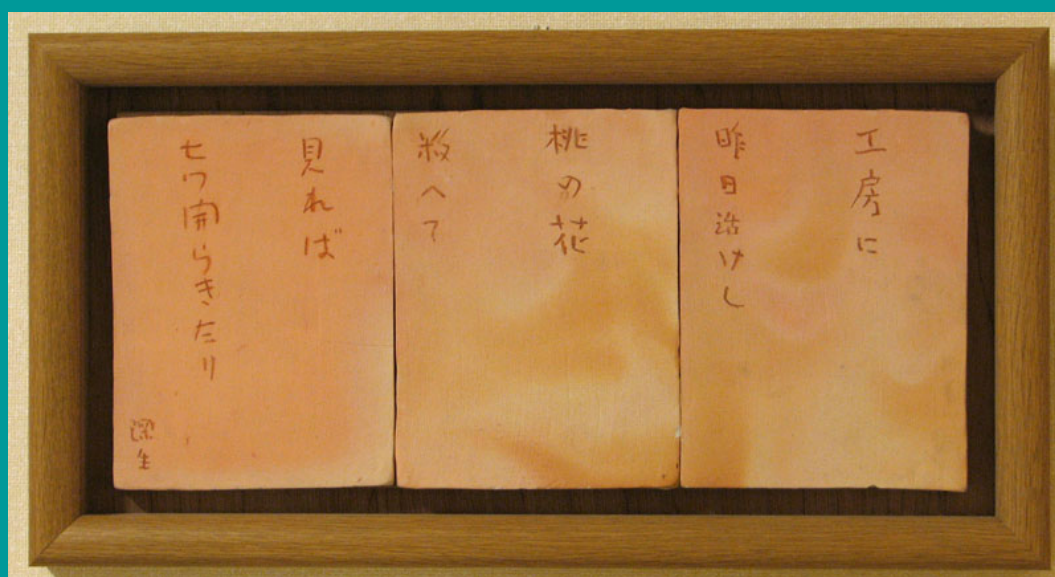 工房に
昨日活けし
桃の花
数へて
見れば
七つ開らきたり